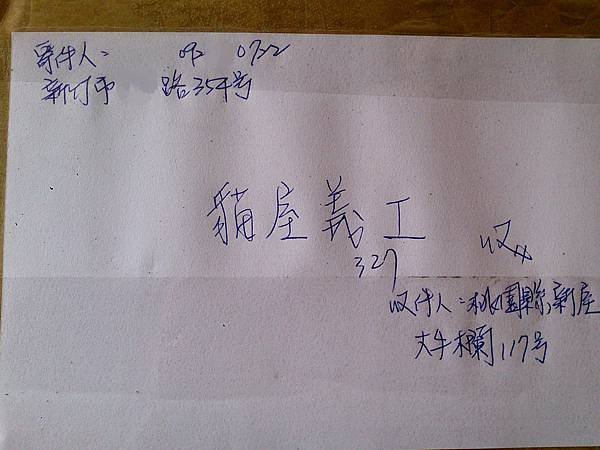 寄件人: 09 0722
新竹市 路354号
貓屋義工 收
327
收件人:桃園縣新屋
大牛欄117号